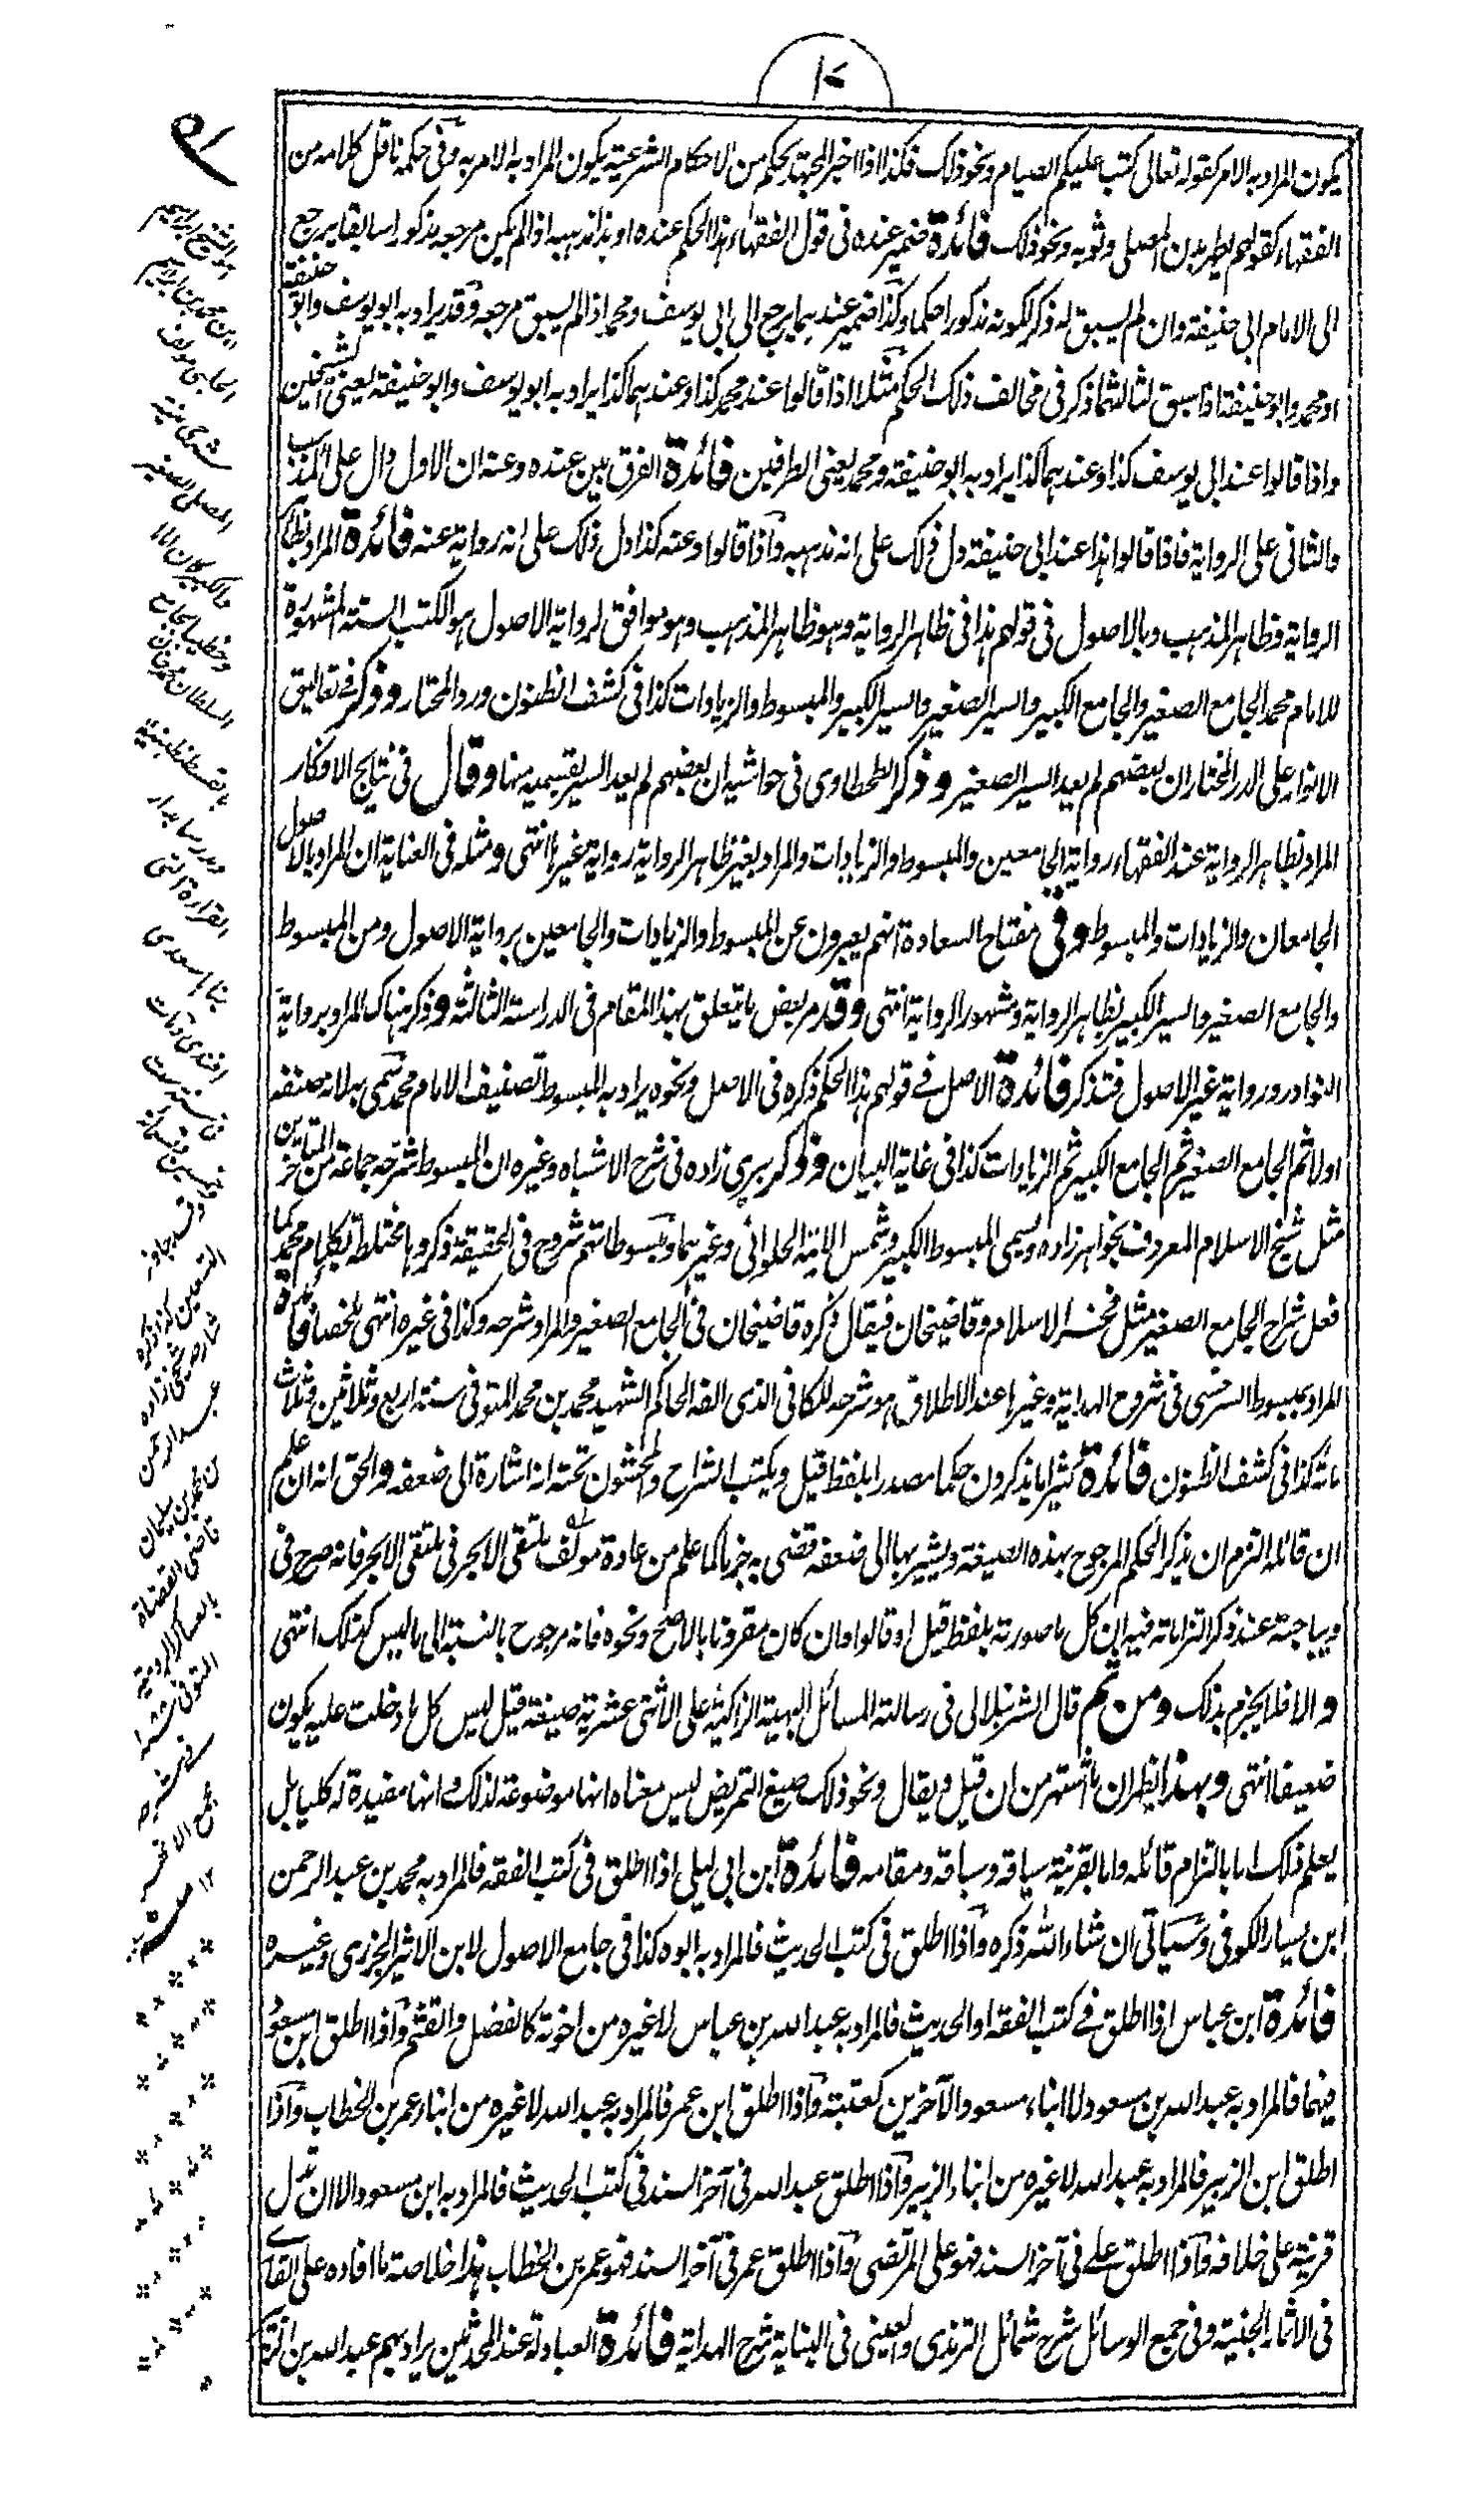 ١٧
يكون المراد به الامر كقوله تعالى كتب عليكم الصيام ونحو ذلك فكذا اذا اخبر المجتهد بحكم من الاحكام الشرعية يكون المراد به الامر به وفى حكمه ناقل كلامه من
الفقهاء كقولهم يطهر بدن المصلى وثوبه ونحو ذلك فائدة ضمير عنده فى قول الفقهاء هذا الحكم عنده او هذا مذهبه اذا لم يكن مرجعه مذكورا سابقا يرجع
الى الامام ابى حنيفة وان لم يسبق له ذكر لكونه مذكورا حكما وكذا ضمير عندهما يرجع الى ابى يوسف ومحمد اذا لم يسبق مرجعه وقد يراد به ابو يوسف وابو حنيفة
او محمد وابو حنيفة اذا سبق لثالثهما ذكر فى مخالف ذلك الحكم مثلا اذا قالوا عند محمد كذا وعندهما كذا يراد به ابو يوسف وابو حنيفة يعنى الشيخين
واذا قالوا عند ابى يوسف كذا وعندهما كذا يراد به ابو حنيفة ومحمد يعنى الطرفين فائدة الفرق بين عنده وعنه ان الاول دال على المذهب
والثانى على الرواية فاذا قالوا هذا عند ابى حنيفة دل ذلك على انه مذهبه واذا قالوا وعنه كذا دل ذلك على انه رواية عنه فائدة المراد بظاهر
الرواية وظاهر المذهب وبالاصول فى قولهم هذا فى ظاهر الرواية وهو ظاهر المذهب وهو موافق لرواية الاصول هو الكتب الستة المشهورة
للامام محمد الجامع الصغير والجامع الكبير والسير الصغير والسير الكبير والمبسوط والزيادات كذا فى كشف الظنون ورد المحتار وذكر فى تعاليق
الانوار على الدر المختار ان بعضهم لم يعد السير الصغير وذكر الطحطاوى فى حواشيه ان بعضهم لم يعد السير بقسميه منها وقال فى نتايج الافكار
المراد بظاهر الرواية عند الفقهاء رواية الجامعين والمبسوط والزيادات والمراد بغير ظاهر الرواية رواية غيرها انتهى ومثله فى العناية ان المراد بالاصول
الجامعان والزيادات والمبسوط وفى مفتاح السعادة انهم يعبرون عن المبسوط والزيادات والجامعين برواية الاصول ومن المبسوط
والجامع الصغير والسير الكبير بظاهر الرواية ومشهور الرواية انتهى وقد مر بعض ما يتعلق بهذا المقام فى الدراسة الثالثة وذكر هناك المراد برواية
النوادر ورواية غير الاصول فتذكر فائدة الاصل فى قولهم هذا الحكم ذكره فى الاصل ونحوه يراد به المبسوط تصنيف الامام محمد سمى به لانه صنفه
اولا ثم الجامع الصغير ثم الجامع الكبير ثم الزيادات كذا فى غاية البيان وذكر بيرى زاده فى شرح الاشباه وغيره ان المبسوط شرحه جماعة من المتاخرين
مثل شيخ الاسلام المعروف بخواهر زاده ويسمى المبسوط الكبير وشمس الائمة الحلوائى وغيرهما ومبسوطاتهم شروح فى الحقيقة ذكروها مختلطة بكلام محمد كما
فعل شراح الجامع الصغير مثل فخر الاسلام وقاضيخان فيقال ذكره قاضيخان فى الجامع الصغير والمراد شرحه وكذا فى غيره انتهى ملخصا فائدة
المراد بمبسوط السرخسى فى شروح الهداية وغيرها عند الاطلاق هو شرحه للكافى الذى الفه الحاكم الشهيد محمد بن محمد المتوفى سنة اربع وثلاثين وثلاث
مائة كذا فى كشف الظنون فائدة كثيرا ما يذكرون حكما مصدرا بلفظ قيل ويكتب الشراح والمحشون تحته انه اشارة الى ضعفه والحق انه ان علم
ان قائله التزم ان يذكر الحكم المرجوح بهذه الصيغة ويشير بها الى ضعفه قضى به جزما كما علم من عادة مولف ملتقى الابحر فى ملتقى الابحر فانه صرح فى
ديباجته عند ذكر التزاماته فيه ان كل ما صورته بلفظ قيل او قالوا وان كان مقرونا بالاصح ونحوه فانه مرجوح بالنسبة الى ما ليس كذلك انتهى
والا فلا يجزم بذلك ومن ثم قال الشرنبلالى فى رسالته المسائل البهية الزاكية على الاثنى عشرية صيغة قيل ليس كل ما دخلت عليه يكون
ضعيفا انتهى وبهذا يظهر ان ما اشتهر من ان قيل ويقال ونحو ذلك صيغ التمريض ليس معناه انها موضوعة لذلك وانها مفيدة له كليا بل
يعلم ذلك اما بالتزام قائله واما بقرينة سياقه وسباقه ومقامه فائدة ابن ابى ليلى اذا اطلق فى كتب الفقه فالمراد به محمد بن عبد الرحمن
ابن يسار الكوفى وسياتى ان شاء الله ذكره واذا اطلق فى كتب الحديث فالمراد به ابوه كذا فى جامع الاصول لابن الاثير الجزرى وغيره
فائدة ابن عباس اذا اطلق فى كتب الفقه او الحديث فالمراد به عبد الله بن عباس لا غيره من اخوته كالفضل والقثم واذا اطلق ابن مسعود
فيهما فالمراد به عبد الله بن مسعود لا ابناء مسعود الآخرين كعتبة واذا اطلق ابن عمر فالمراد به عبد الله لا غيره من ابناء عمر بن الخطاب واذا
اطلق ابن الزبير فالمراد به عبد الله لا غيره من ابناء الزبير واذا اطلق عبد الله فى آخر السند فى كتب الحديث فالمراد به ابن مسعود الا ان تدل
قرينة على خلافه واذا اطلق على فى آخر السند فهو على المرتضى واذا اطلق عمر فى آخر السند فهو عمر بن الخطاب هذا خلاصة ما افاده على القارى
فى الاثمار الجنية وفى جمع الوسائل شرح شمائل الترمذى والعينى فى البناية شرح الهداية فائدة العبادلة عند المحدثين يراد بهم عبد الله بن الزبير
هو الشيخ ابراهيم
ابن محمد بن ابراهيم
الحلبى مولف
شرحى منية
المصلى الصغير
والكبير كان اماما
وخطيبا بجامع
السلطان محمد خان
بقسطنطينية
ومدرسا بدار
القراءة التى
بناها سعدى
افندى
التسعين كذا ذكره
شارحه شيخى زاده
عبد الرحمن
بن محمد بن سليمان
قاضى القضاة
بالعساكر الرومية
المتوفى
فى شرحه
مجمع الانهر
١٢ منه